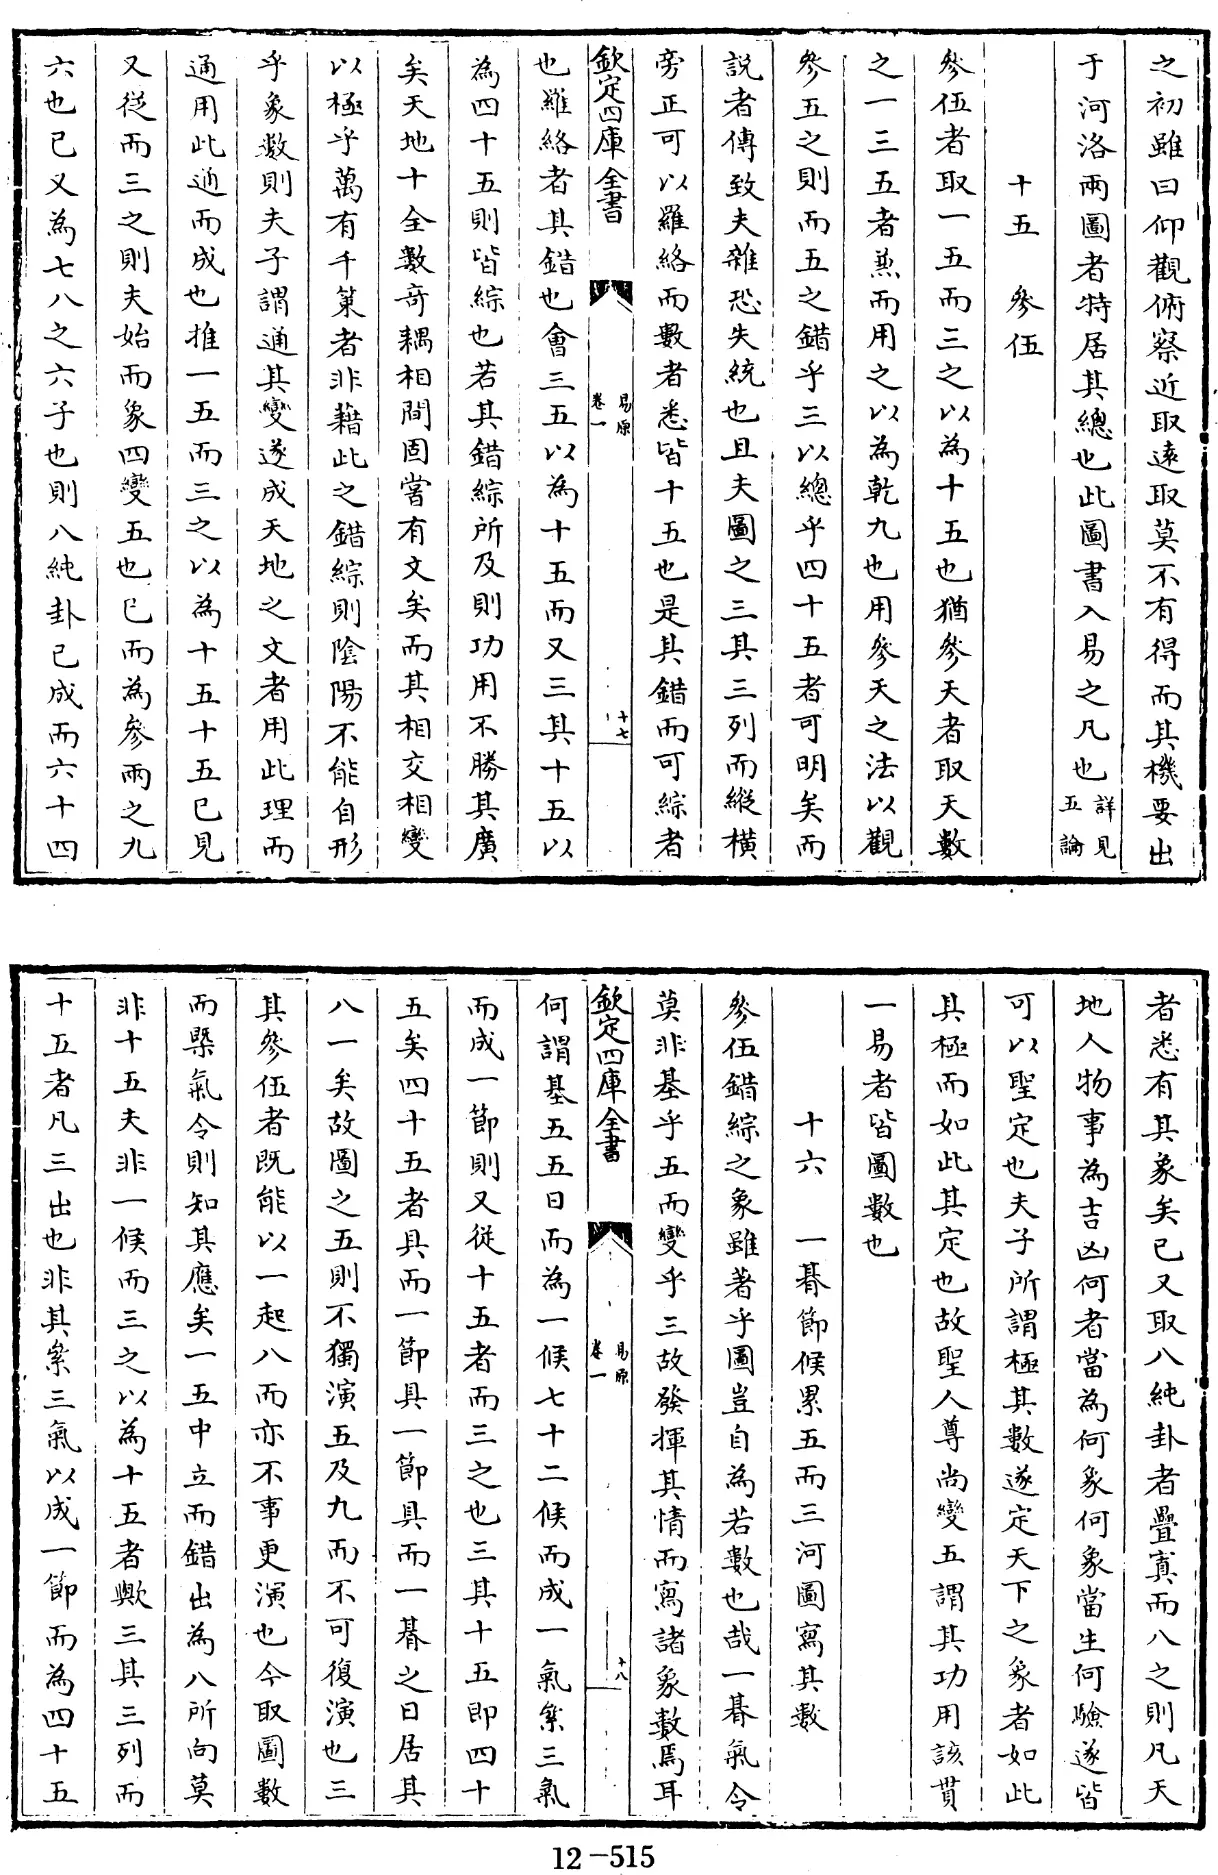 之初雖曰仰觀俯察近取遠取莫不有得而其機要出
于河洛兩圖者特居其總也此圖書入易之凡也詳見五論
十五 參伍
參伍者取一五而三之以為十五也猶參天者取天數
之一三五者兼而用之以為乾九也用參天之法以觀
參五之則而五之錯乎三以總乎四十五者可明矣而
說者傳致夫雜恐失統也且夫圖之三其三列而縱橫
旁正可以羅絡而數者悉皆十五也是其錯而可綜者
欽定四庫全書
易原
卷一
十七
也羅絡者其錯也會三五以為十五而又三其十五以
為四十五則皆綜也若其錯綜所及則功用不勝其廣
矣天地十全數奇耦相間固當有文矣而其相交相變
以極乎萬有千策者非藉此之錯綜則陰陽不能自形
乎象數則夫子謂通其變遂成天地之文者用此理而
通用此逎而成也推一五而三之以為十五十五已見
又從而三之則夫始而象四變五也已而為參兩之九
六也已又為七八之六子也則八純卦已成而六十四
者悉有其象矣已又取八純卦者疊寘而八之則凡天
地人物事為吉凶何者當為何象何象當生何驗遂皆
可以聖定也夫子所謂極其數遂定天下之象者如此
其極而如此其定也故聖人尊尚變五謂其功用該貫
一易者皆圖數也
十六 一朞節候累五而三河圖寫其數
參伍錯綜之象雖著乎圖豈自為若數也哉一朞氣令
莫非基乎五而變乎三故發揮其情而寫諸象數焉耳
欽定四庫全書
易原
卷一
十八
何謂基五五日而為一候七十二候而成一氣絫三氣
而成一節則又從十五者而三之也三其十五即四十
五矣四十五者具而一節具一節具而一朞之日居其
八一矣故圖之五則不獨演五及九而不可復演也三
其參伍者既能以一起八而亦不事更演也今取圖數
而槩氣令則知其應矣一五中立而錯出為八所向莫
非十五夫非一候而三之以為十五者歟三其三列而
十五者凡三出也非其絫三氣以成一節而為四十五
12-515